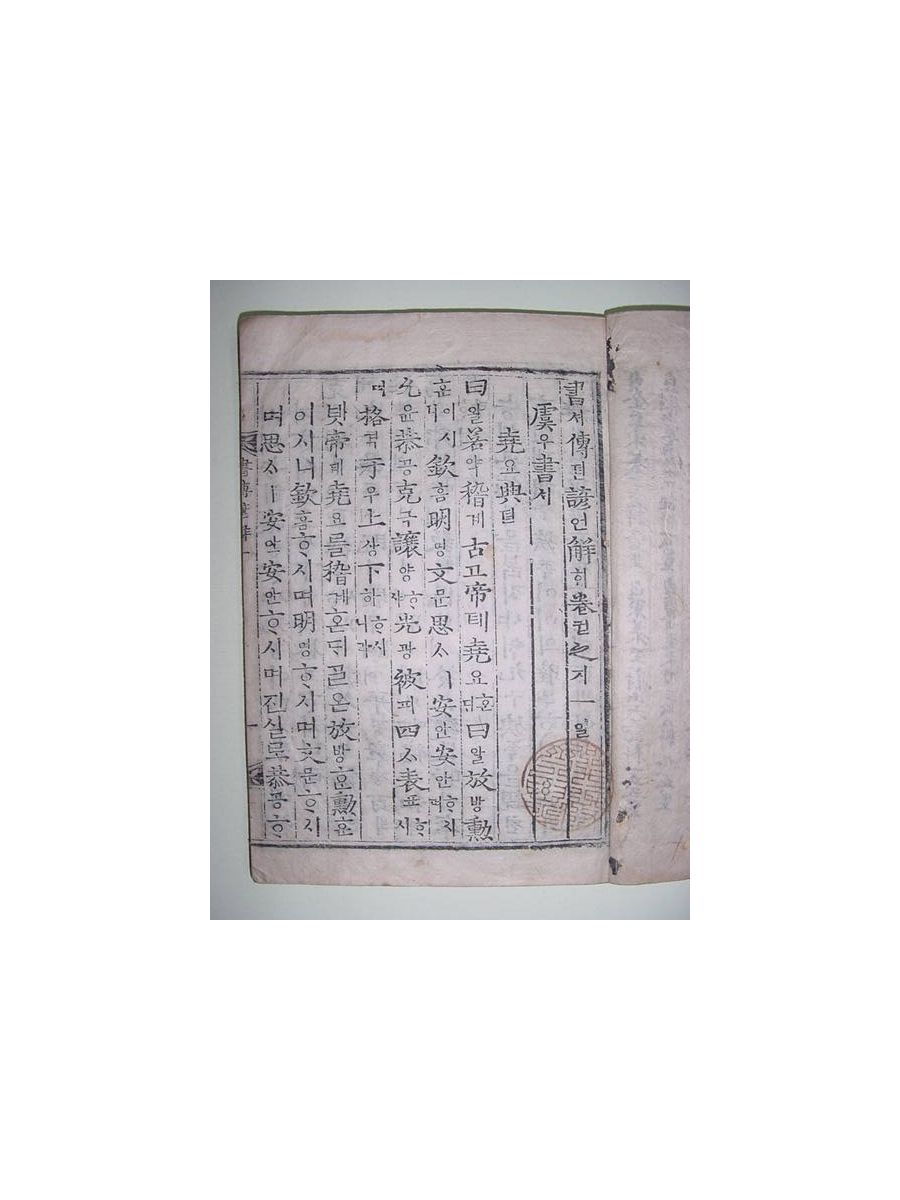 書셔傳뎐諺언解ᄒᆡ卷권之지一일
虞우書셔
堯요典뎐
曰왈若약稽계古고帝뎨堯요혼ᄃᆡ曰왈放방勳
훈이시니欽흠明명文문思ᄉᆞㅣ安안安안ᄒᆞ시며
允윤恭공克극讓양ᄒᆞ샤光광被피四ᄉᆞ表표ᄒᆞ시
며格격于우上상下하ᄒᆞ시니라
녯帝뎨堯요를稽계혼ᄃᆡᄀᆞᆯ온放방ᄒᆞᆫ勳훈
이시니欽흠ᄒᆞ시며明명ᄒᆞ시며文문ᄒᆞ시
며思ᄉᆞㅣ安안安안ᄒᆞ시며진실로恭공ᄒᆞ
書傳諺解一